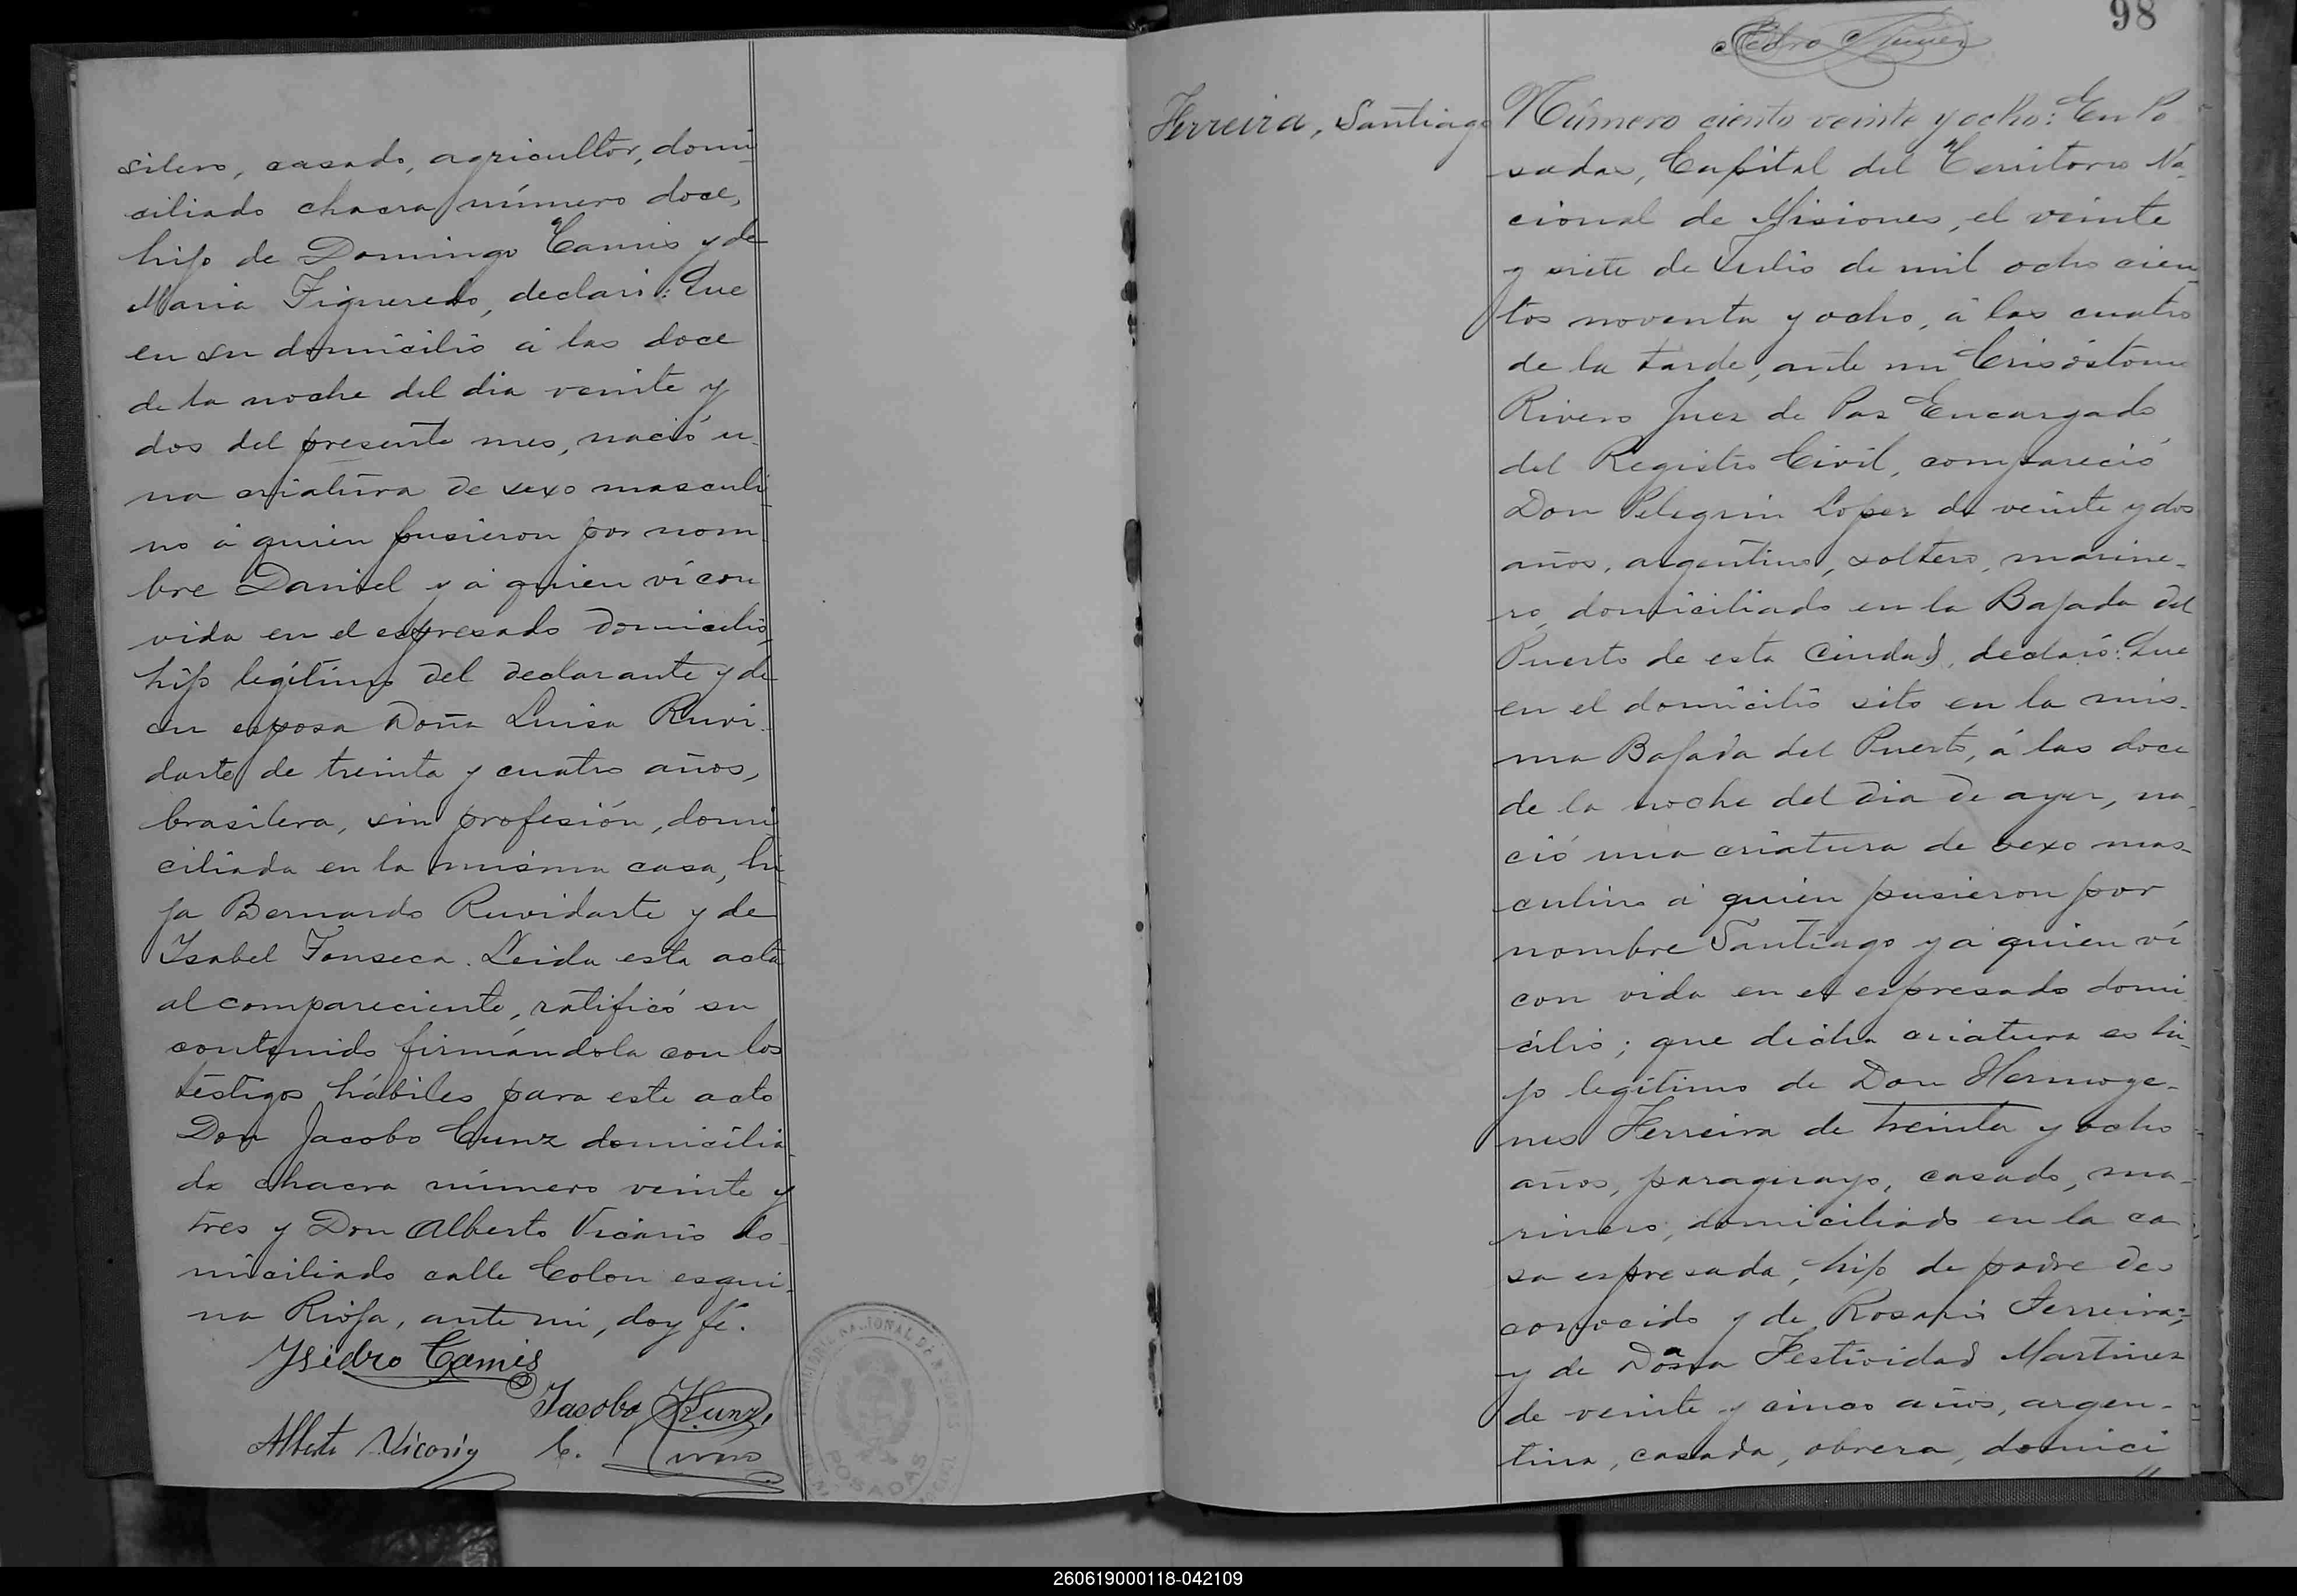 silero, casado, agricultor, domi
ciliado chacra número doce,
hijo de Domingo Camis y de
Maria Figueredo, declaró: Que
en su domicilio á las doce
de la noche del dia veinte y
dos del presente mes, nació u-
na criatura de sexo masculi
no á quien pusieron por nom
bre Daniel y á quien ví con
vida en el espresado domicilio,
hijo legítimo del declarante y de
su esposa Doña Luisa Ruvi-
darte de treinta y cuatro años,
brasilera, sin profesión, domi
ciliada en la misma casa, hi-
ja Bernardo Ruvidarte y de
Isabel Fonseca. Leida esta acta
al compareciente, ratificó su
contenido firmándola con los
testigos hábiles para este acto
Don Jacobo Cunz domicilia
do chacra número veinte y
tres y Don Alberto Vicario do
miciliado calle Colon esqui-
na Rioja, ante mi, doy fé.
Ysidro Camis
Jacobo Kunz
Alberto Vicario C. Rivero
POSADAS
98
Pedro
Ferreira, Santiago
Número ciento veinte y ocho: En Po
sadas, Capital del Territorio Na-
cional de Misiones, el veinte
y siete de Julio de mil ocho cien
tos noventa y ocho, á las cuatro
de la tarde, ante mi Crisóstomo
Rivero Juez de Paz Encargado
del Registro Civil, compareció
Don Pelegrin Lopez de veinte y dos
años, argentino, soltero, marine-
ro, domiciliado en la Bajada del
Puerto de esta Ciudad, declaró: Que
en el domicilio sito en la mis-
ma Bajada del Puerto, á las doce
de la noche del dia de ayer, na-
ció una criatura de sexo mas-
culino á quien pusieron por
nombre Santiago y á quien ví
con vida en el espresado domi
cilio; que dicha criatura es hi-
jo legítimo de Don Hermoge-
nes Ferreira de treinta y ocho
años, paraguayo, casado, ma-
rinero, domiciliado en la ca
sa espresada, hijo de padre des
conocido y de Rosario Ferreira;
y de Doña Festividad Martinez
de veinte y cinco años, argen-
tina, casada, obrera, domici
260619000118-042109